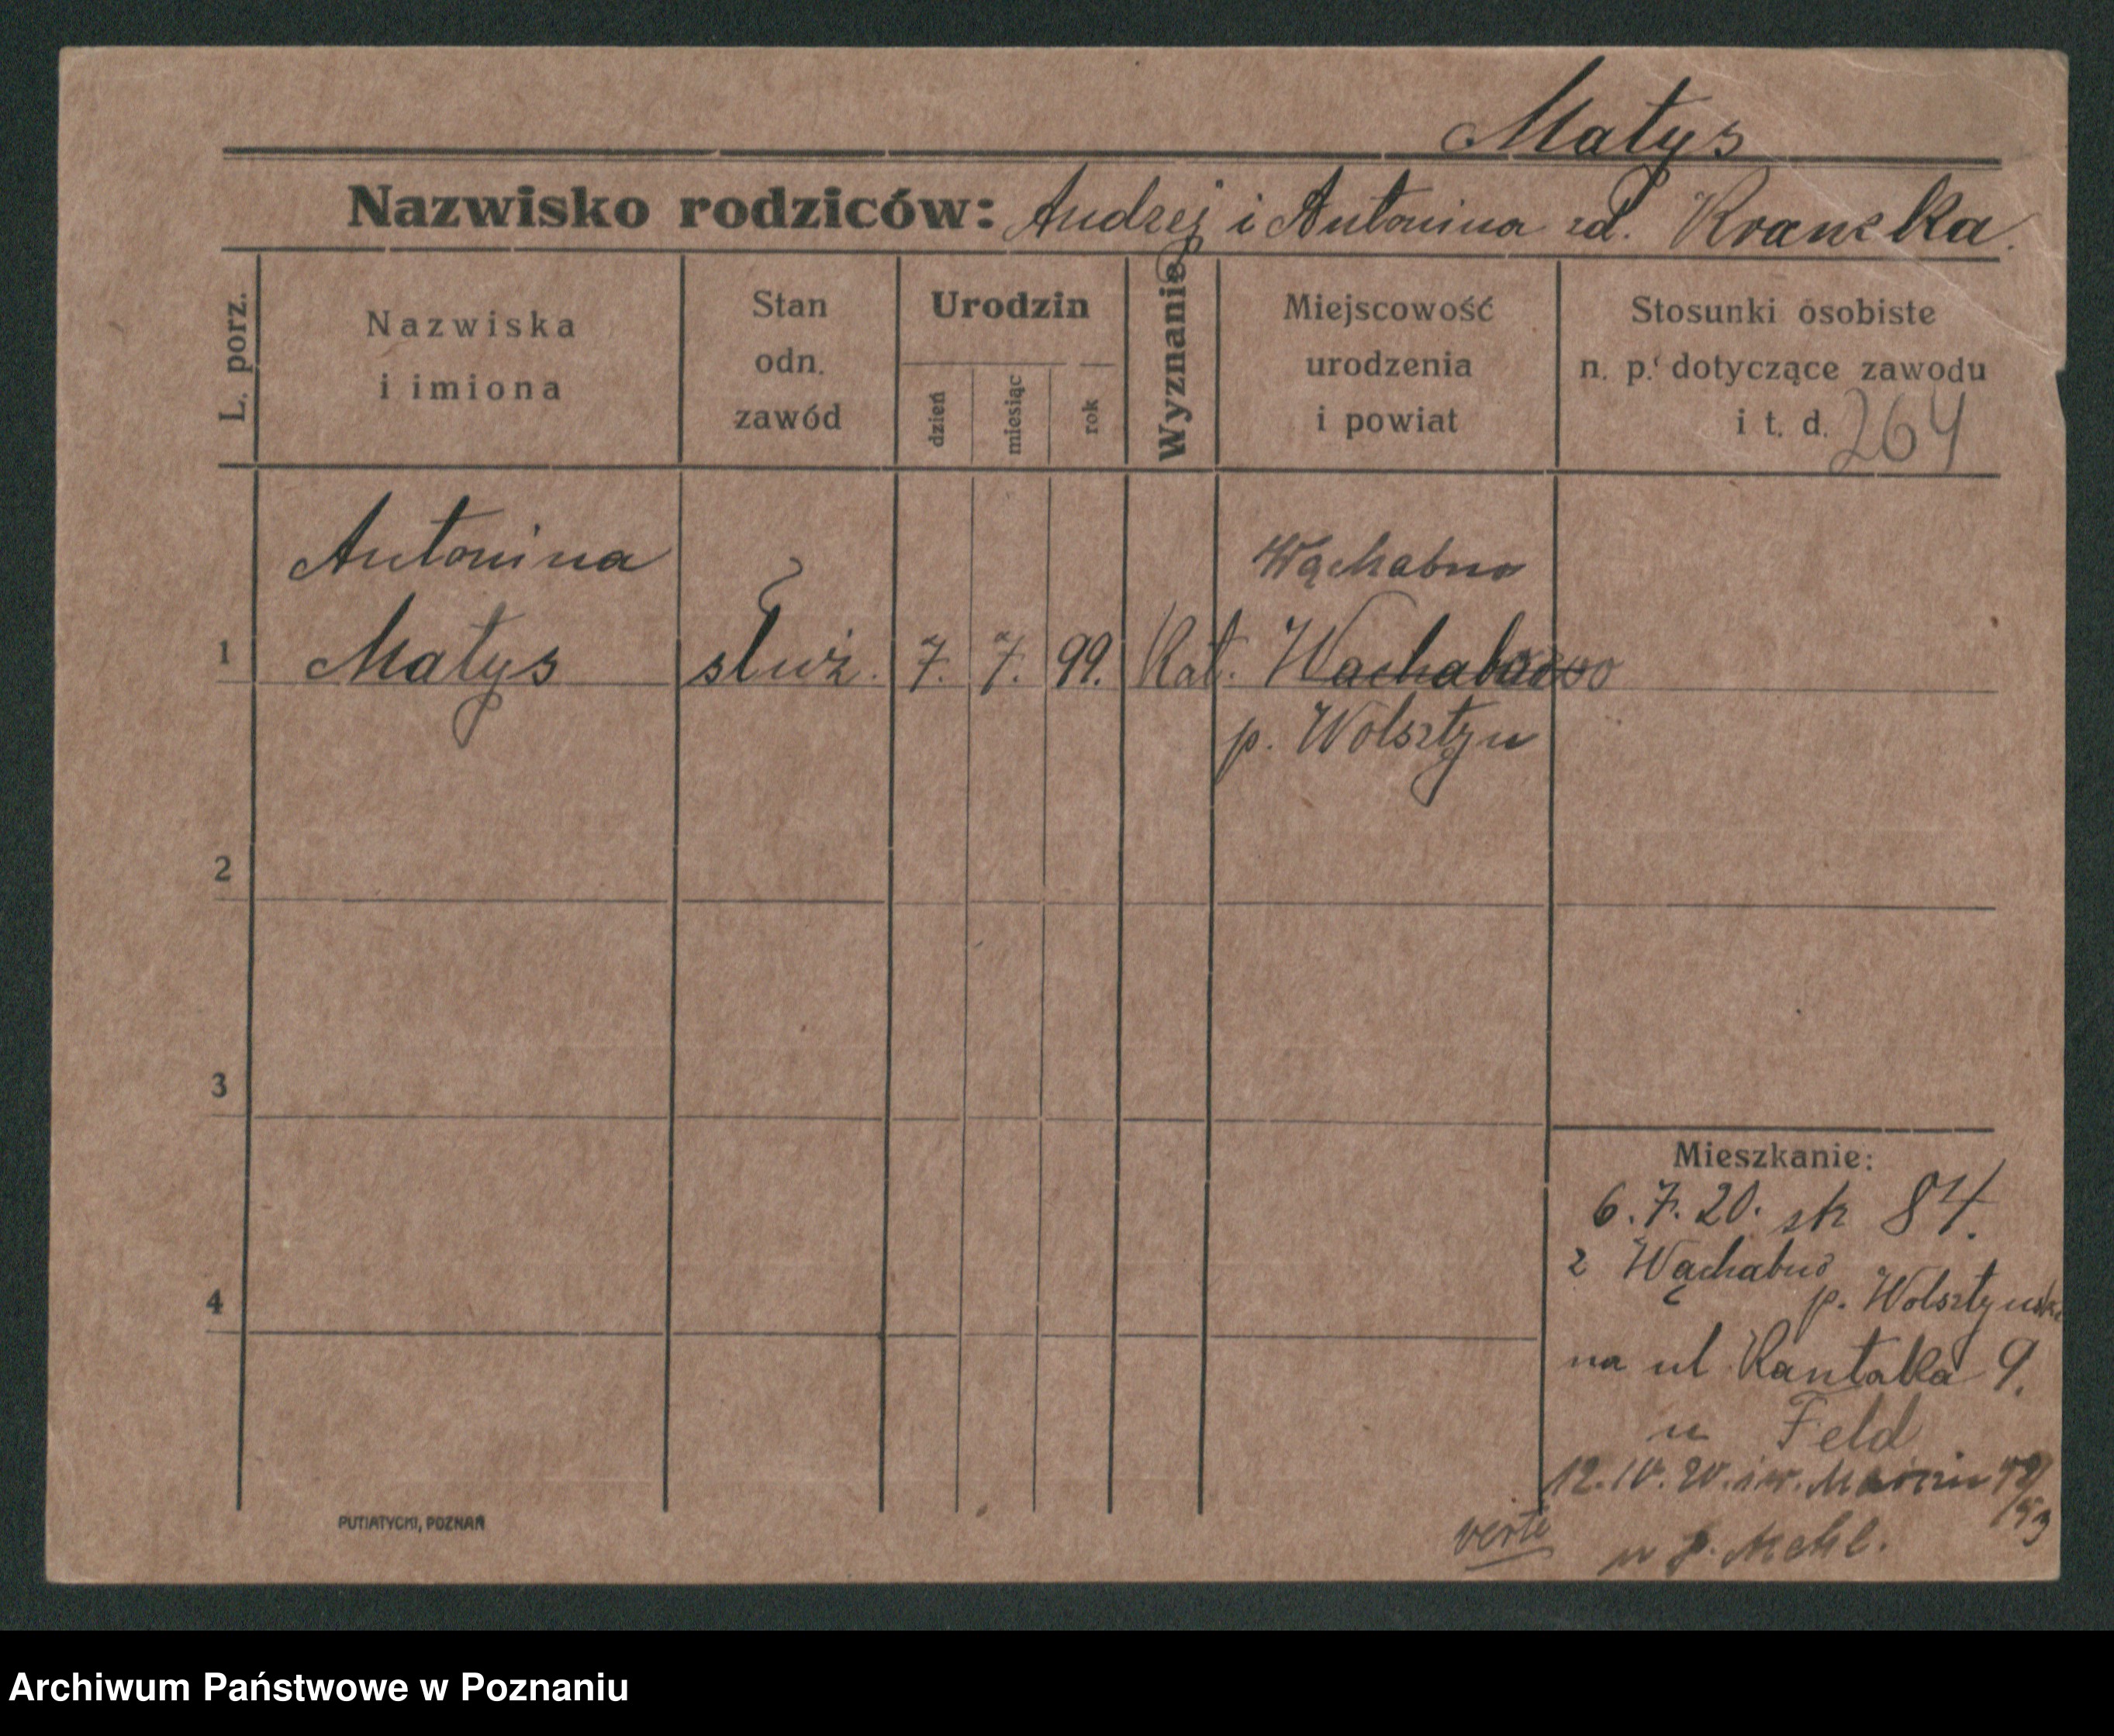 Matys
Nazwisko rodziców: Andrzej i Antonina zd. Kranska.
L. porz.
Nazwiska
i imiona
Stan
odn.
zawód
Urodzin
dzień
miesiąc
rok
Wyznanie
Miejscowość
urodzenia
i powiat
Stosunki osobiste
n. p. dotyczące zawodu
i t. d.
264
1
Antonina
Matys
służ.
7.
7.
99.
Kat.
Wąchabno
p. Wolsztyn
2
3
4
Mieszkanie:
6.7.20. sk 84.
z Wąchabno
p. Wolsztyński
na ul Kantaka 9.
u Feld
12.IV. św. Marcin
verte
PUTIATYCKI, POZNAŃ
Archiwum Państwowe w Poznaniu